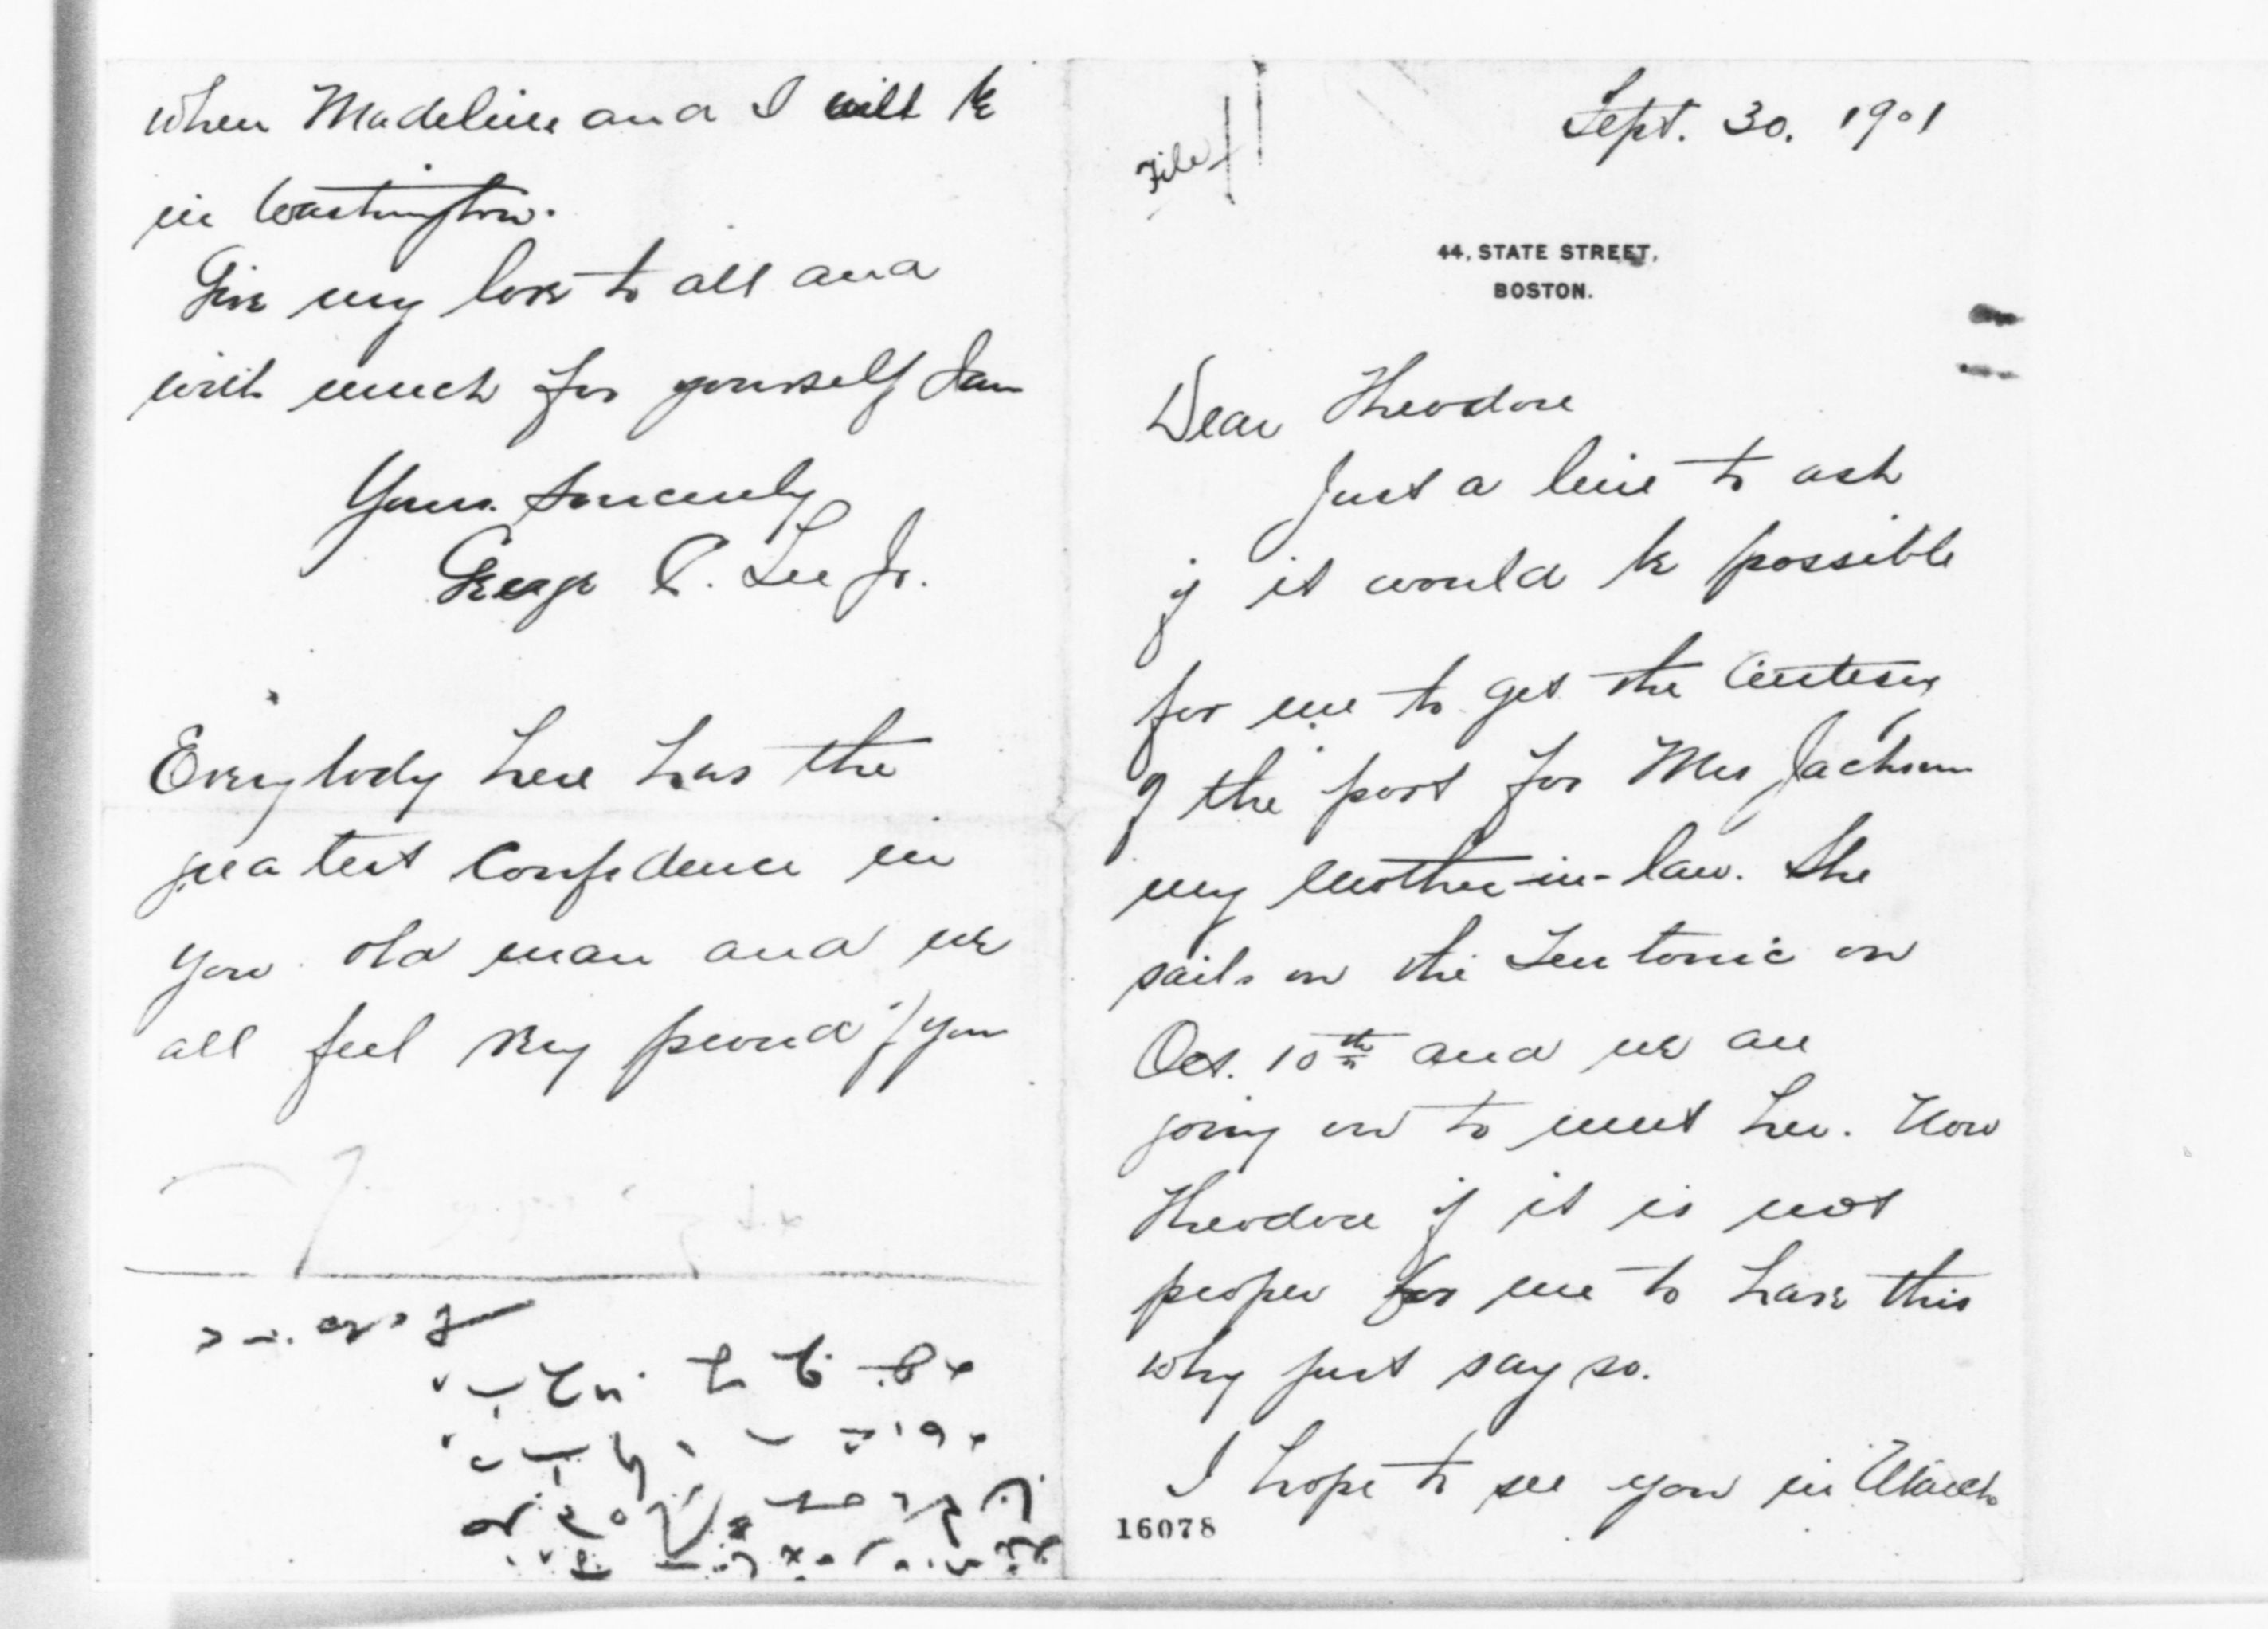 File
Sept. 30. 1901
44, STATE STREET,
BOSTON.
Dear Theodore
Just a line to ask
if it would be possible
for me to get the Courtesy
of the port for Mrs Jackson
my mother-in-law. She
sails on the Teutonic on
Oct. 10th and we are
going on to meet her. Now
Theodore if it is not
proper for me to have this
why just say so.
I hope to see you in March
16078
when Madeline and I will be
in Washington.
Give my love to all and
with much for yourself I am
Yours sincerely
George C. Lee Jr.
Everybody here has the
greatest confidence in
you old man and we
all feel very proud of you